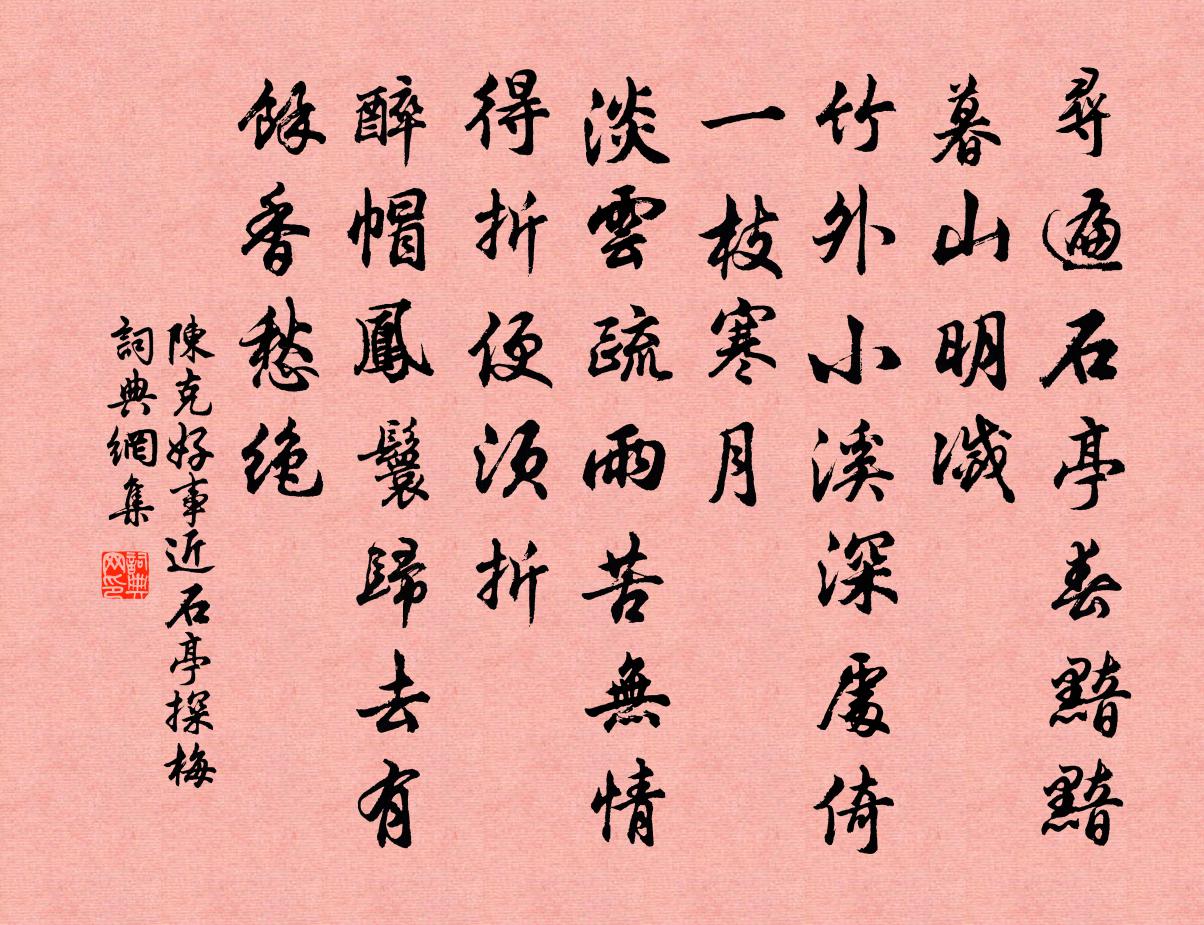 尋遍石亭春黯黯
暮山明滅
竹外小溪深處倚
一枝寒月
淡雲疏雨苦無情
得折便須折
醉帽鳳鬟歸去有
餘香愁絕
陳克好事近石亭探梅
詞典網集
詞典網印